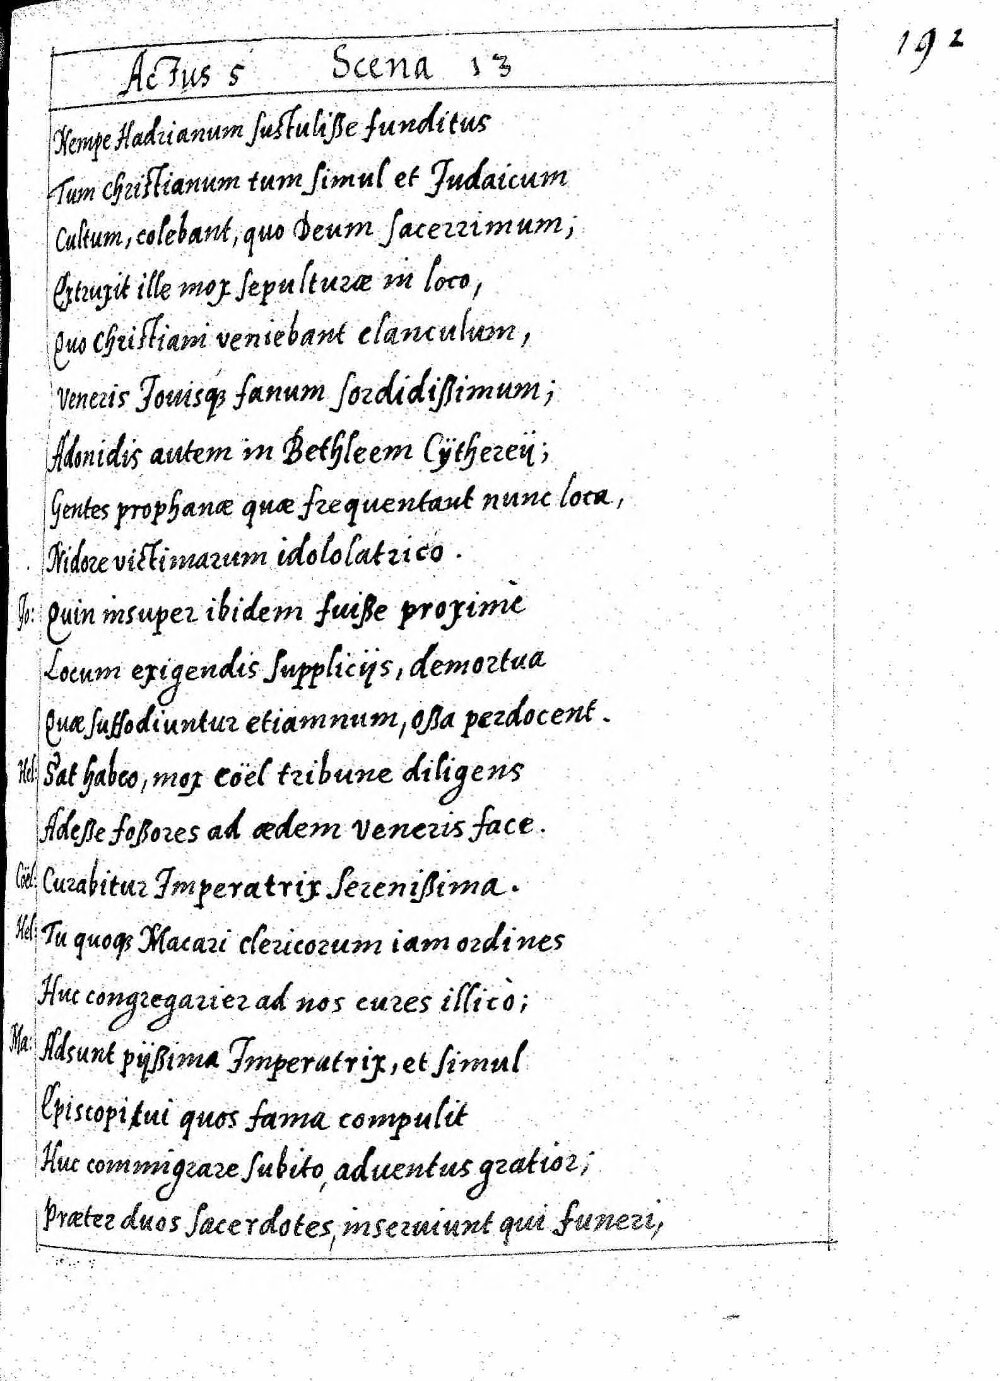 192
Actus 5 Scena 13
Nempe Hadrianum sustuliße funditus
Tum christianum tum simul et Judaicum
Cultum, colebant, quo Deum sacerrimum;
Extruxit ille mox sepulturæ in loco,
Quo Christiani veniebant clanculum,
Veneris Jouisqꝫ fanum sordidißimum;
Adonidis autem in Bethleem Cÿthereij;
Gentes prophanæ quæ frequentant nunc loca,
Nidore victimarum idololatrico.
Jo: Quin insuper ibidem fuiße proximè
Locum exigendis supplicijs, demortua
Quæ suffodiuntur etiamnum, oßa perdocent.
Hel: Sat habeo, mox Coël tribune diligens
Adeße foßores ad ædem Veneris face.
Coël: Curabitur Imperatrix serenißima.
Hel: Tu quoqꝫ Macari clericorum iam ordines
Huc congregarier ad nos cures illicò;
Ma: Adsunt pijßima Imperatrix, et simul
Episcopi tui quos fama compulit
Huc commigrare subito, aduentus gratior;
Præter duos sacerdotes, inseruiunt qui funeri,